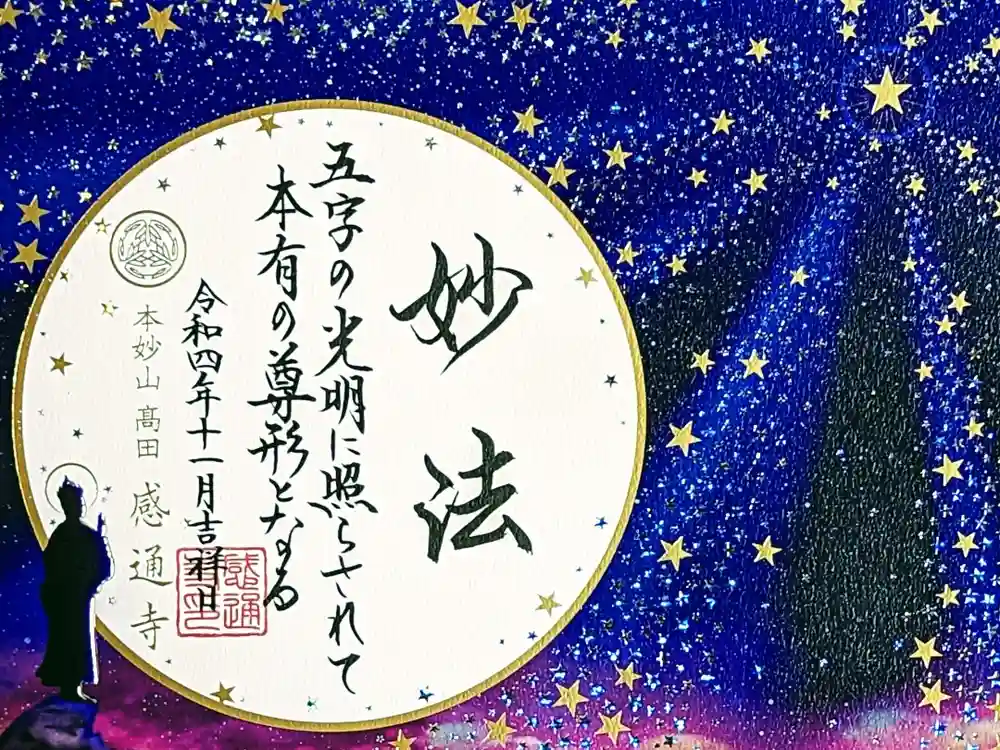 妙法
五字の光明に照らされて
本有の尊形となる
令和四年十一月吉祥日
本妙山 髙田 感通寺
感通